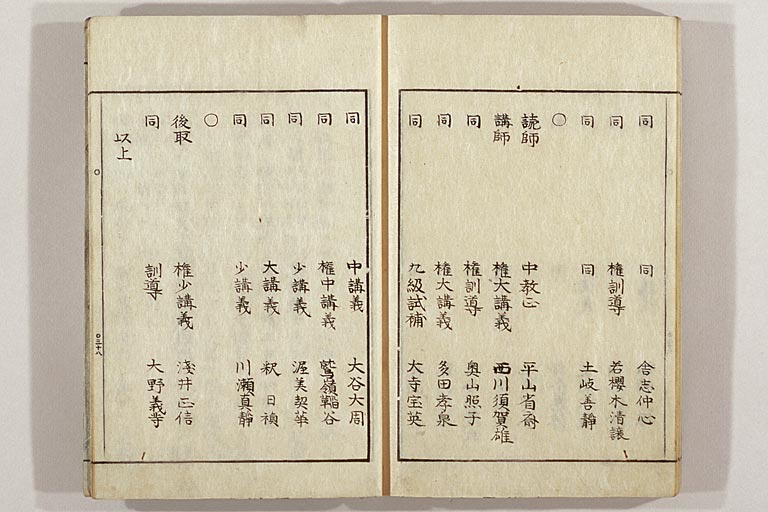 同 同 舎志仲心
同 権訓導 若櫻木清譲
同 同 土岐善静
〇
読師 中教正 平山省斎
講師 権大講義 西川須賀雄
同 権訓導 奥山照子
同 権大講義 多田孝泉
同 九級試補 大寺宝英
同 中講義 大谷大周
同 権中講義 鷲嶺 谷
同 少講義 渥美契華
同 大講義 釈日禎
同 少講義 川瀬真静
〇
後取 権少講義 淺井正信
同 訓導 大野義
以上
〇三十八